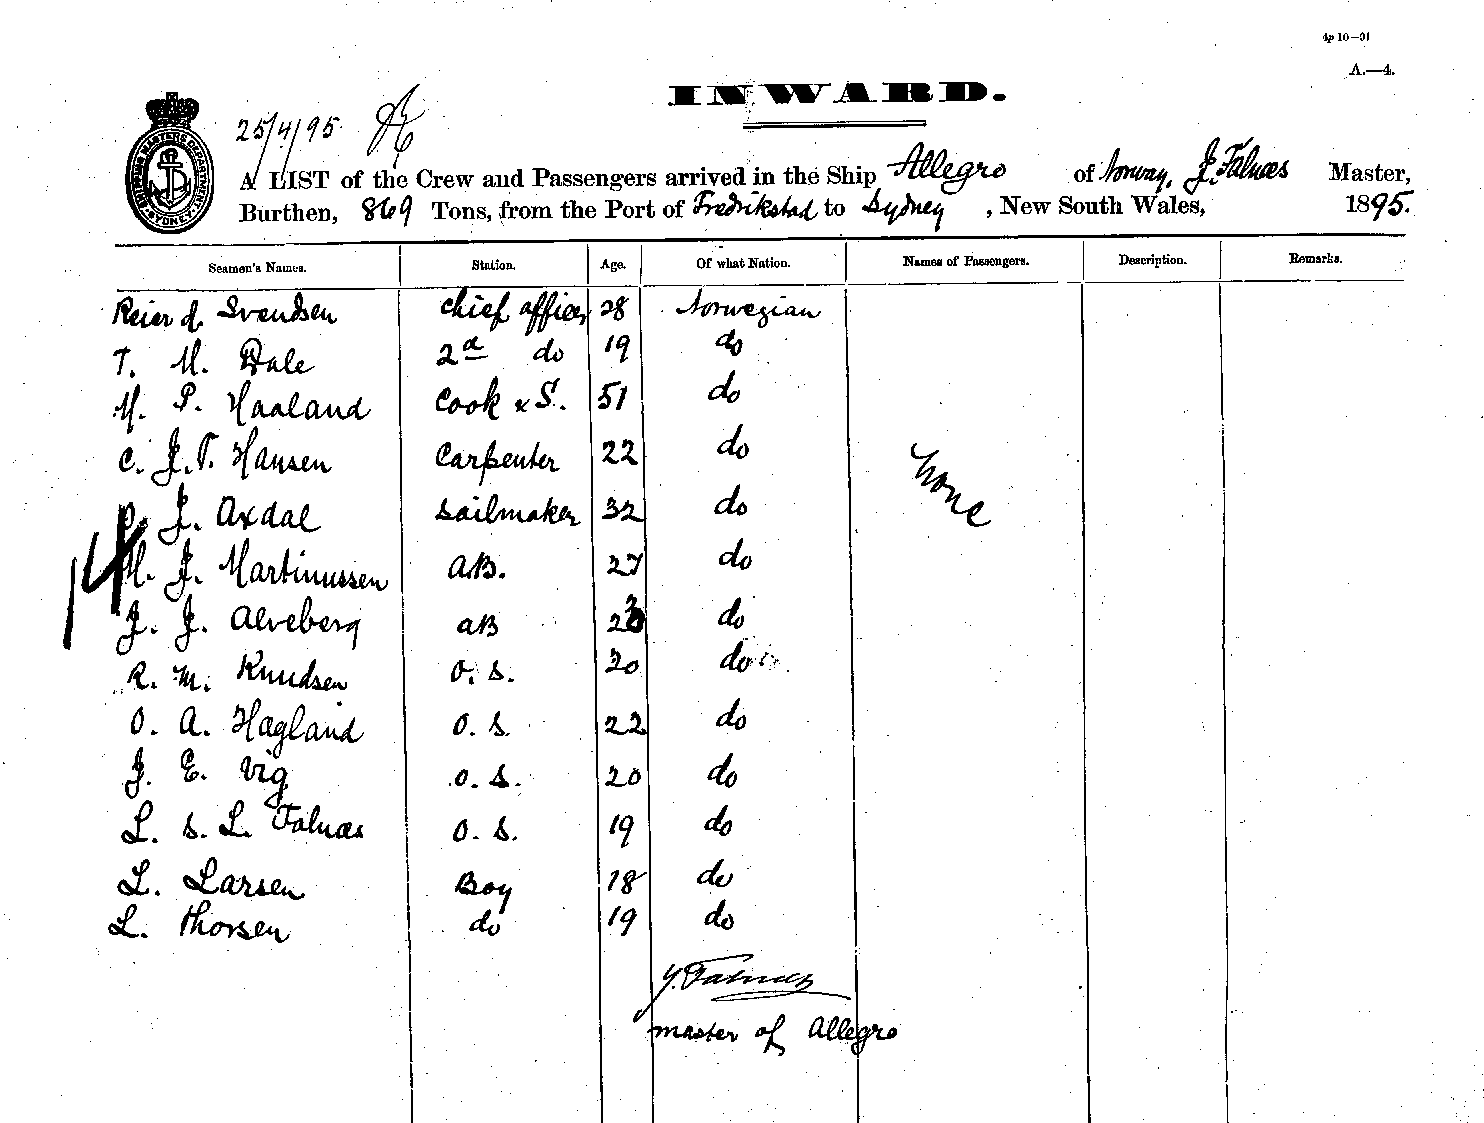 4p 10—91
A.—4.
INWARD.
25/4/95
A LIST of the Crew and Passengers arrived in the Ship Allegro of Norway, J. Falnæs Master,
Burthen, 869 Tons, from the Port of Fredrikstad to Sydney, New South Wales, 1895.
Seamen's Names. Station. Age. Of what Nation. Names of Passengers. Description. Remarks.
Reier J. Svendsen Chief officer 28 Norwegian
T. M. Dale 2d do 19 do
M. P. Haaland Cook & S. 51 do
C. J. T. Hansen Carpenter 22 do
None
J. Axdal Sailmaker 32 do
14
M. J. Martinussen AB. 27 do
J. J. Alveberg AB do
R. M. Knudsen O. S. 20 do
O. A. Hagland O. S. 22 do
J. E. Vig O. S. 20 do
L. S. L. Falnæs O. S. 19 do
L. Larsen Boy 18 do
L. Thorsen do 19 do
J. Falnæs
master of Allegro